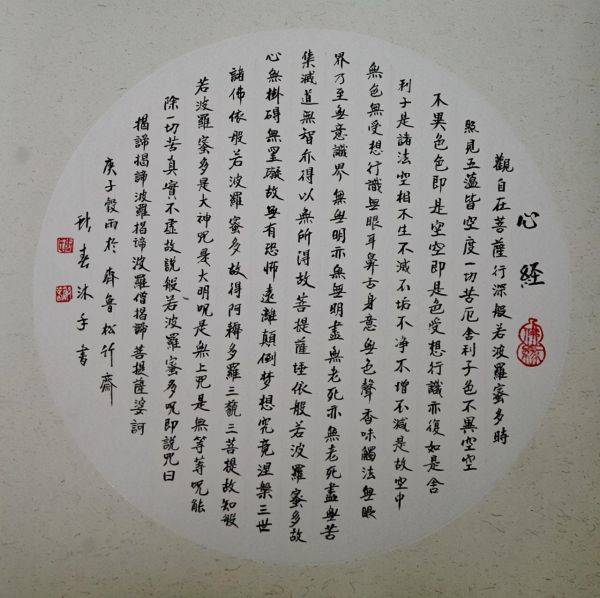 心經
觀自在菩薩行深般若波羅蜜多時
照見五蘊皆空度一切苦厄舍利子色不異空空
不異色色即是空空即是色受想行識亦復如是舍
利子是諸法空相不生不滅不垢不净不增不减是故空中
無色無受想行識無眼耳鼻舌身意無色聲香味觸法無眼
界乃至無意識界無無明亦無無明盡無老死亦無老死盡無苦
集滅道無智亦得以無所得故菩提薩埵依般若波羅蜜多故
心無掛碍無罣礙故無有恐怖遠離顛倒梦想究竟涅槃三世
諸佛依般若波羅蜜多故得阿耨多羅三藐三菩提故知般
若波羅蜜多是大神咒是大明呪是無上咒是無等等呪能
除一切苦真實不虛故說般若波羅蜜多呪即說咒曰
揭諦揭諦波羅揭諦波羅僧揭諦菩提薩婆訶
庚子穀雨於齊魯松竹齋
春沐手書